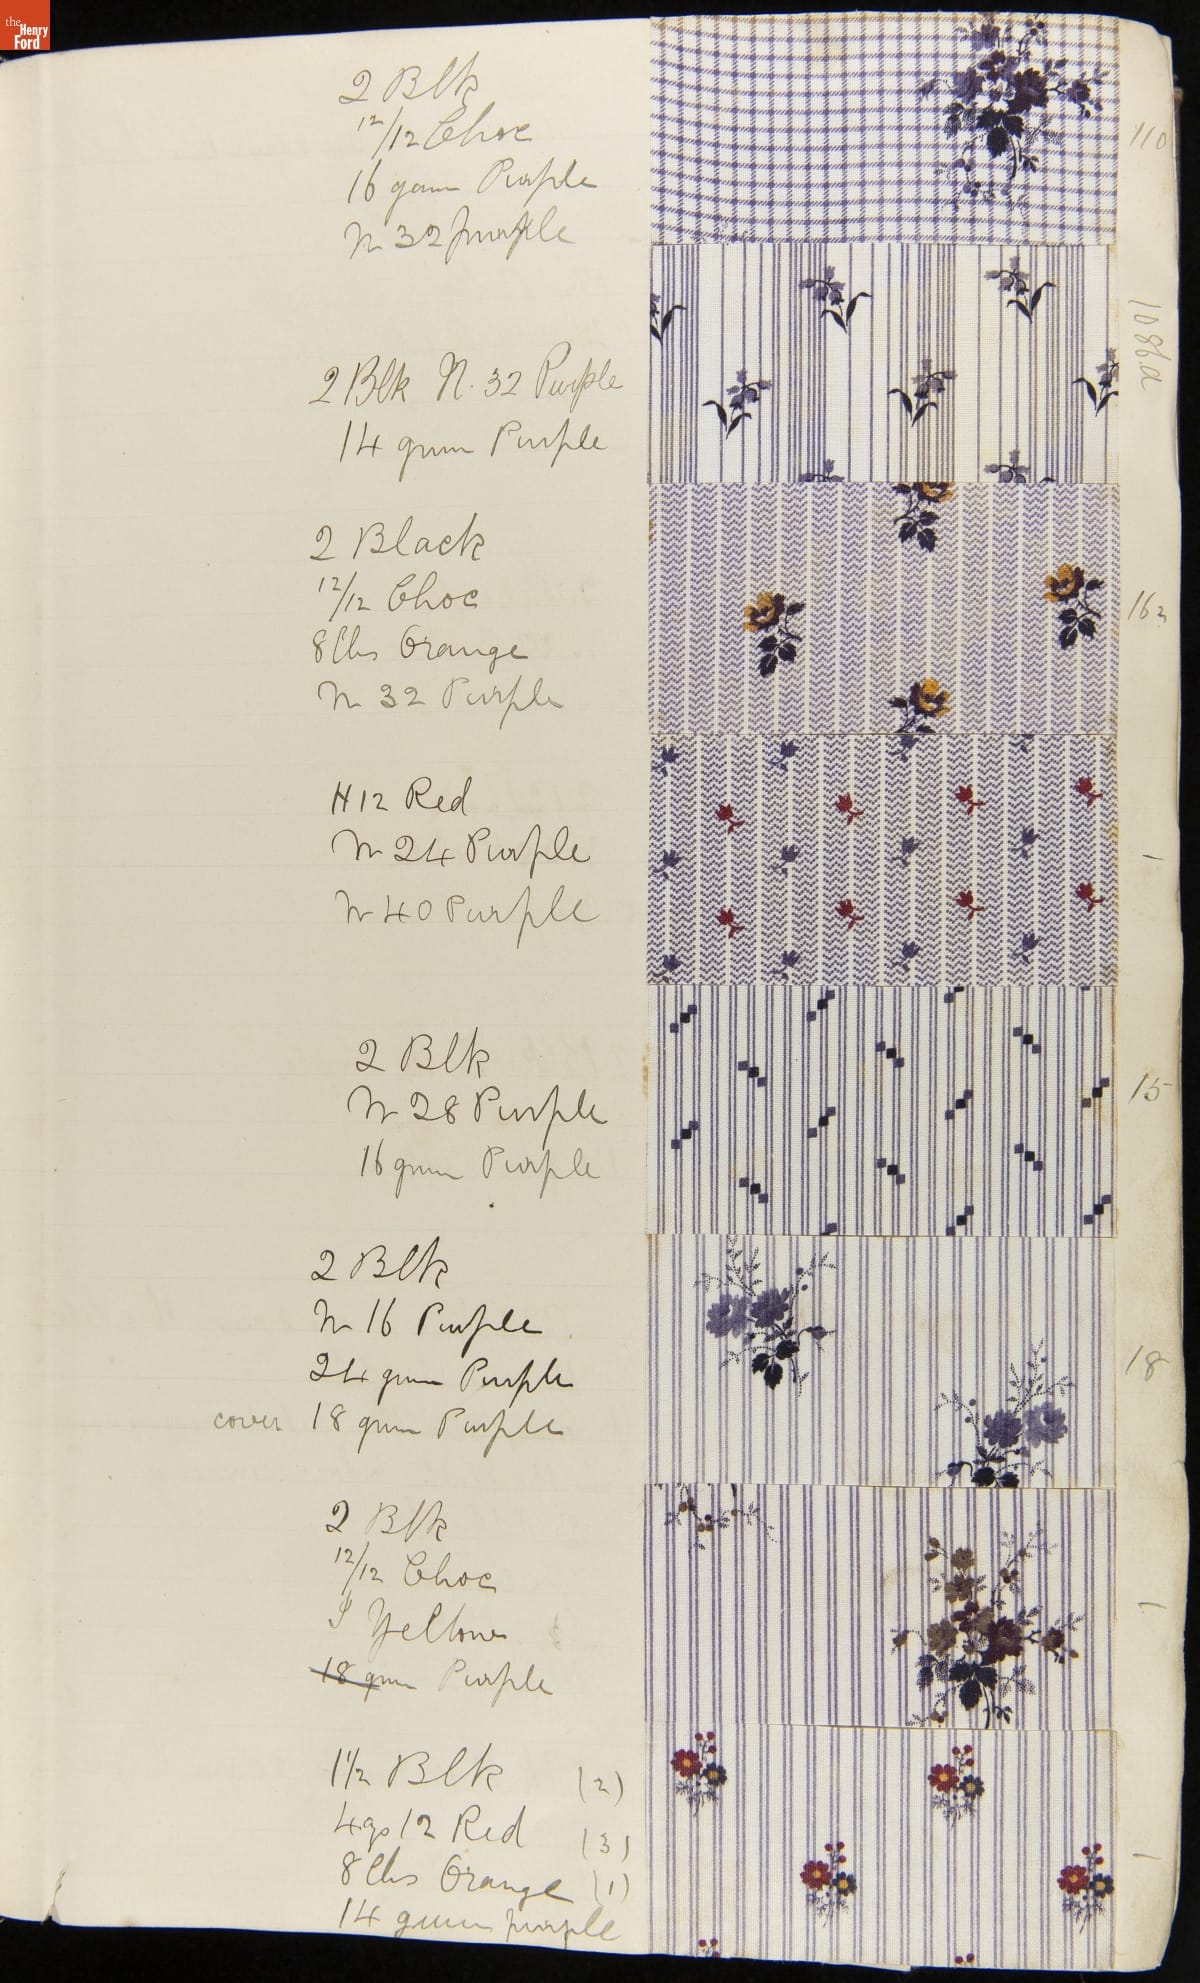 the
Henry
Ford
2 Blk
12/12 Choc
16 gum Purple
N 32 purple
110
2 Blk N. 32 Purple
14 gum Purple
108
2 Black
12/12 Choc
8 lbs Orange
N 32 Purple
16
H 12 Red
N 24 Purple
N 40 Purple
2 Blk
N 28 Purple
16 gum Purple
15
2 Blk
N 16 Purple
24 gum Purple
cover 18 gum Purple
18
2 Blk
12/12 Choc
Yellow
18 gum Purple
1 1/2 Blk (2)
4 gs 12 Red (3)
8 lbs Orange (1)
14 gum purple